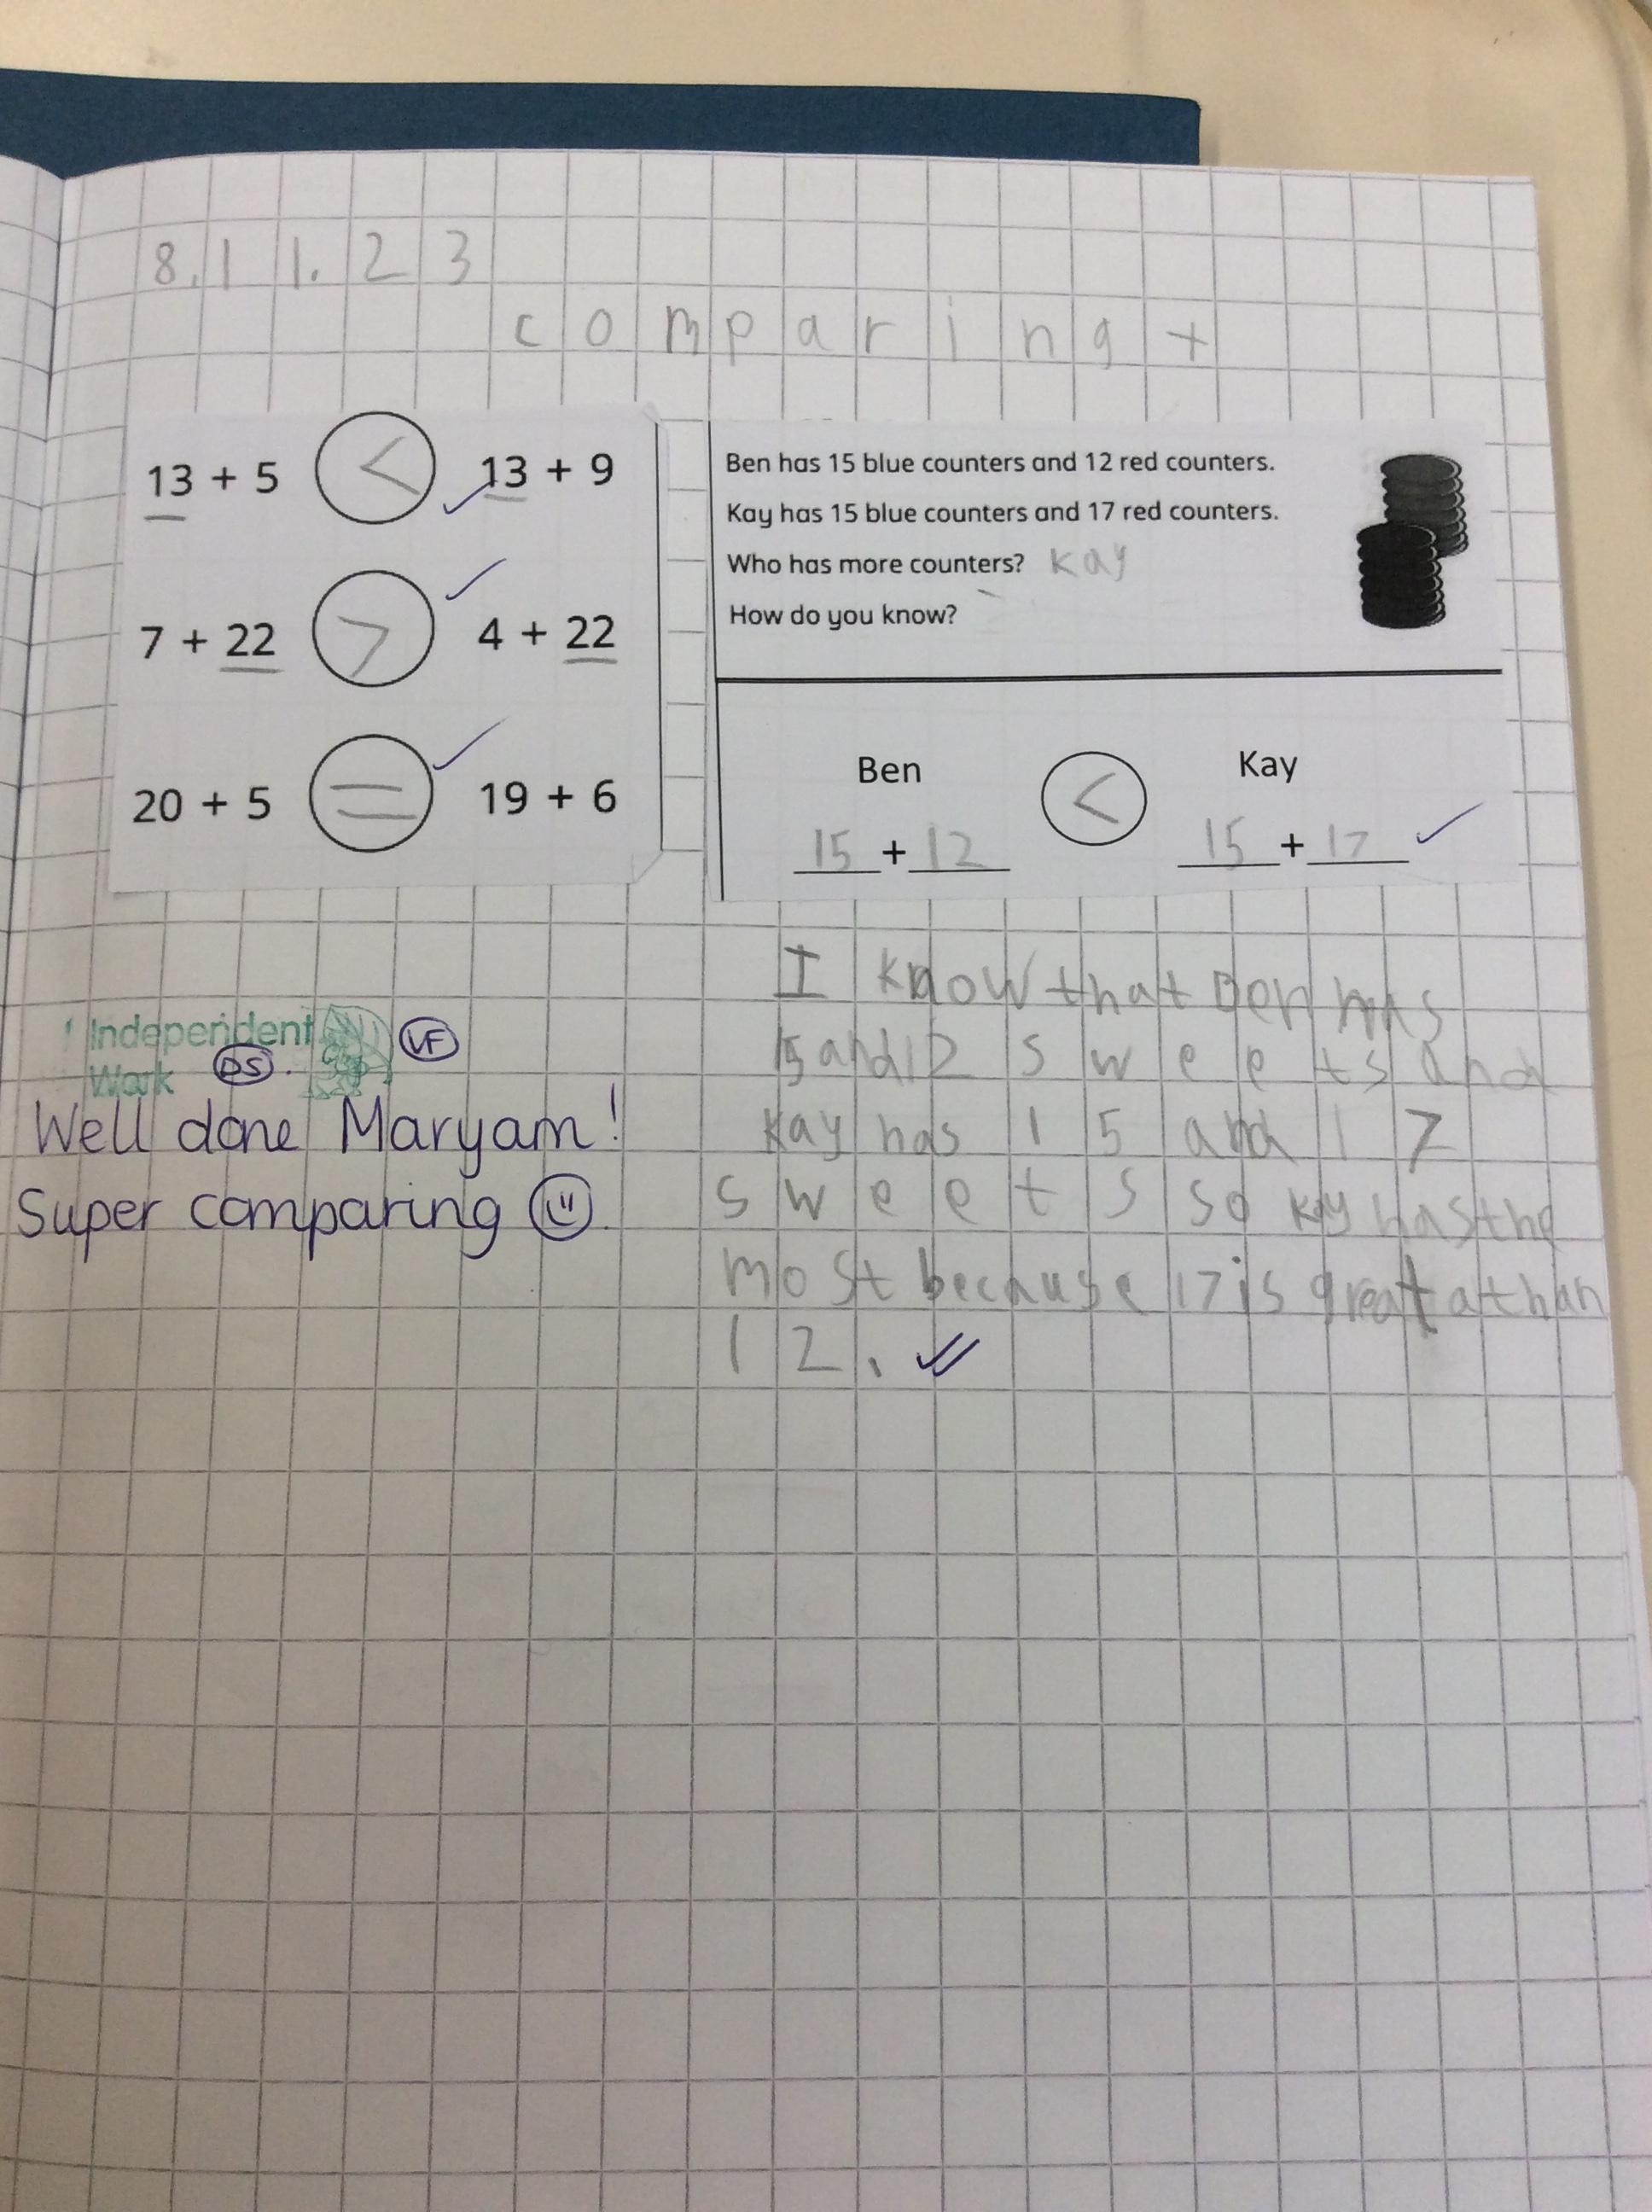 8.11.23
comparing +
13 + 5 < 13 + 9
7 + 22 > 4 + 22
20 + 5 = 19 + 6
Ben has 15 blue counters and 12 red counters.
Kay has 15 blue counters and 17 red counters.
Who has more counters? Kay
How do you know?
Ben < Kay
15 + 12 15 + 17
Independent
Work DS. VF
Well done Maryam!
Super comparing
I know that Ben has
15 and 12 sweets and
Kay has 15 and 17
sweets so Kay has the
most because 17 is greata than
12.